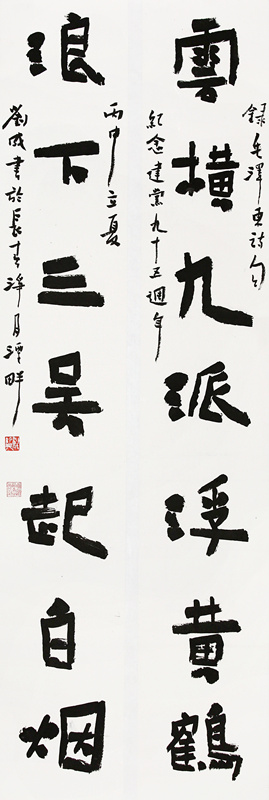 錄毛澤東詩句
雲橫九派浮黃鶴
紀念建黨九十五週年
丙申立夏
浪下三吳起白烟
劉成書於長春淨月潭畔